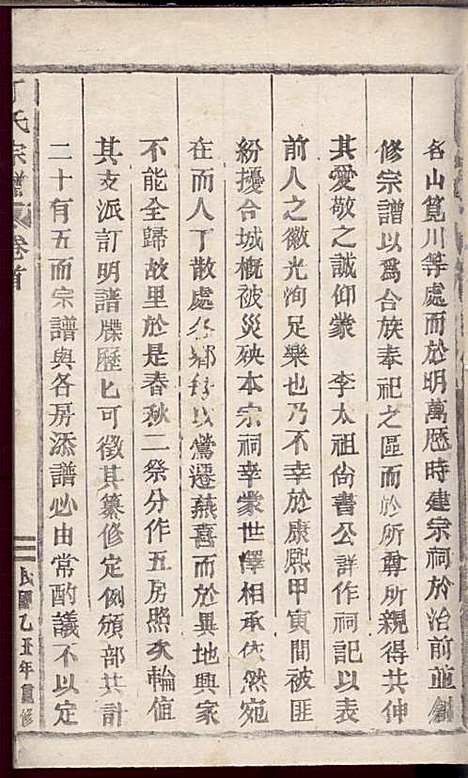 各山筧川等處而於明萬厯時建宗祠於治前並創
修宗譜以爲合族奉祀之區而於所尊所親得共伸
其愛敬之誠仰䝉　李太祖尙書公詳作祠記以表
前人之徽光洵足樂也乃不幸於康熙甲寅間被匪
紛擾合城槪被災殃本宗祠幸䝉世澤相承依然宛
在而人丁散處各鄉每以鶯遷燕喜而於異地興家
不能全歸故里於是春秋二祭分作五房照次輪值
其支派訂明譜牒歷匕可徵其纂修定例頒部共計
二十有五而宗譜與各房添譜必由常酌議不以定
丁氏宗譜　卷首　民國乙丑年重修